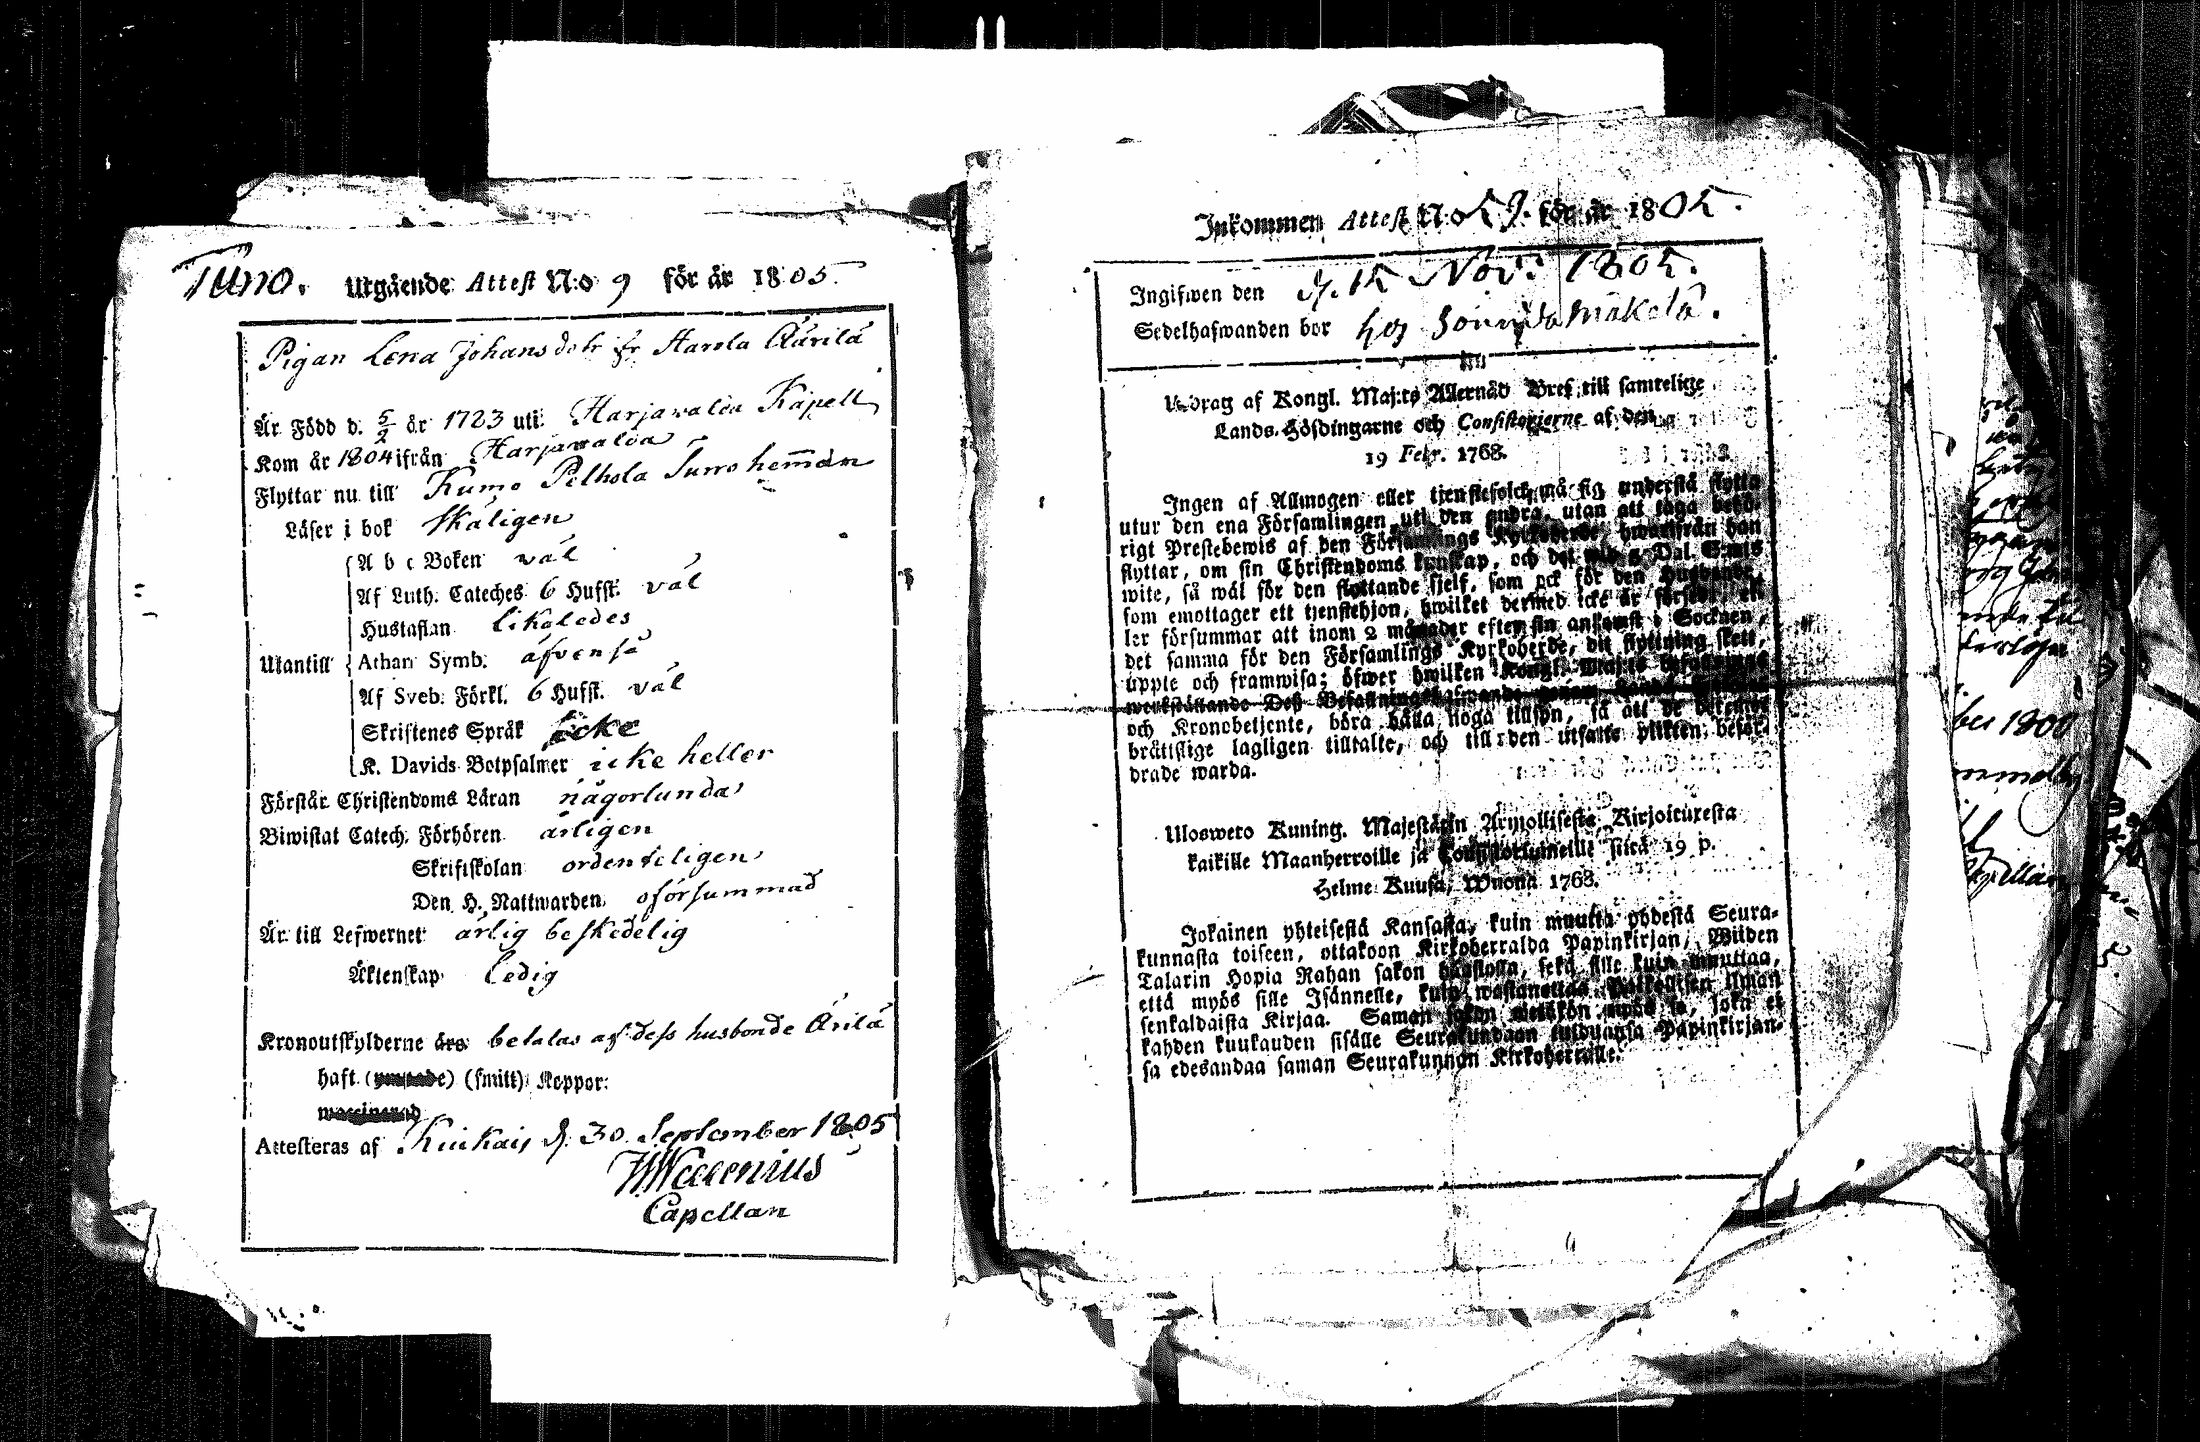 Tuno.
Utgående Attest N:o 9 för år 1805.
Pigan Lena Johansdotr fr Harola Äärilä
Är Född d. 5/2 år 1783 uti Harjavalda Kapell
Kom år 1804 ifrån Harjavalda
Flyttar nu till Kumo Pelhola Juno hem̄an
Läser i bok skäligen
A b c Boken väl
Af Luth. Cateches 6 Hufst. väl
Hustaflan likaledes
Utantill Athan. Symb. äfvenså
Af Sveb. Förkl. 6 Hufst. väl
Skriftenes Språk icke
K. Davids Botpsalmer icke heller
Förstår Christendoms Läran någorlunda
Biwistat Catech. Förhören årligen
Skriftskolan ordenteligen
Den H. Nattwarden oförsummad
Är till Lefwernet ärlig beskedelig
Äktenskap ledig
Kronoutskylderne års betalas af dess husbonde Ärilä
haft (ympade) (smitt) Koppor:
waccinerad
Attesteras af Kiukais d. 30 September 1805
Capellan
Inkommen Attest N:o 59. för år 1805.
Ingifwen den d. 15 Nov: 1805.
Sedelhafwanden bor hos Mäkelä.
Utdrag af Kongl. Maj:ts Allernåd. Bref till samtelige
Lands-Höfdingarne och Consistorierne af den
19 Febr. 1768.
Ingen af Allmogen eller tjenstefolck må sig understå flytta
utur den ena Församlingen uti den andra, utan att taga behö-
rigt Prestebewis af den Församlings Kyrkoherde, hwarifrån han
flyttar, om sin Christendoms kunskap, och det wid 5 Dal. S:mts
wite, så wäl för den flyttande sjelf, som ock för den Husbonde,
som emottager ett tjenstehjon, hwilket dermed icke är försedt, el-
ler försummar att inom 2 månader efter sin ankomst i Socknen,
det samma för den Församlings Kyrkoherde, dit flyttning skett,
uppte och framwisa; öfwer hwilken Kongl. Maj:ts befallnings
werkställande Deß Befallningshafwande
och Kronobetjente, böra hålla noga tillsyn, så att de
brättslige lagligen tilltalte, och till den utsatte plikten beför-
drade warda.
Ulosweto Kuning. Majestätin Armollisesta Kirjoituxesta
kaikille Maanherroille ja Consistoriumeille siitä 19 p.
Helme-Kuusa, Wuonna 1768.
Jokainen yhteisestä Kansasta, kuin muutta yhdestä Seura-
kunnasta toiseen, ottakoon Kirkoherralda Papinkirjan, Wiiden
Talarin Hopia Rahan sakon haastolla, sekä sille kuin muuttaa,
että myös sille Isännelle, kuin wastanottaa Palkollisen ilman
senkaldaista Kirjaa. Saman sakon wetäkön myös se, joka ei
kahden kuukauden sisälle Seurakundaan tulduansa Papinkirjan-
sa edesandaa saman Seurakunnan Kirkoherralle.